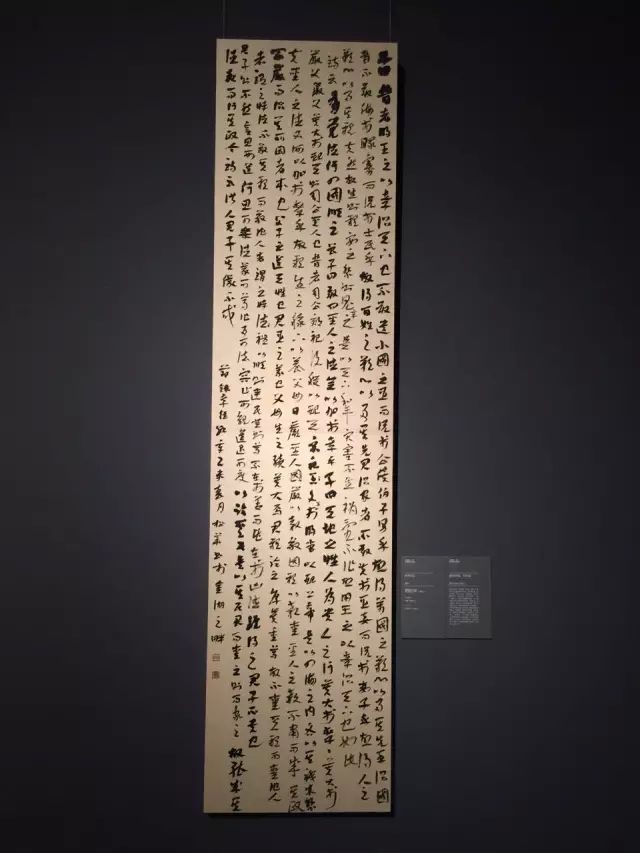 子曰昔者明王之以孝治天下也不敢遺小國之臣而況於公侯伯子男乎故得萬國之歡心以事其先王治國
者不敢侮於鰥寡而況於士民乎故得百姓之歡心以事其先君治家者不敢失於臣妾而況於妻子乎故得人之
歡心以事其親夫然故生則親安之祭則鬼享之是以天下和平災害不生禍亂不作故明王之以孝治天下也如此
詩云有覺德行四國順之曾子曰敢問聖人之德無以加於孝乎子曰天地之性人為貴人之行莫大於孝孝莫大於
嚴父嚴父莫大於配天則周公其人也昔者周公郊祀后稷以配天宗祀文王於明堂以配上帝是以四海之內各以其職來祭
夫聖人之德又何以加於孝乎故親生之膝下以養父母日嚴聖人因嚴以教敬因親以教愛聖人之教不肅而成其政
不嚴而治其所因者本也父子之道天性也君臣之義也父母生之續莫大焉君親臨之厚莫重焉故不愛其親而愛他人
者謂之悖德不敬其親而敬他人者謂之悖禮以順則逆民無則焉不在於善而皆在於凶德雖得之君子不貴也
君子則不然言思可道行思可樂德義可尊作事可法容止可觀進退可度以臨其民是以其民畏而愛之則而象之故能成其
德教而行其政令詩云淑人君子其儀不忒
節錄孝經 乙未春月 書於 湖之畔